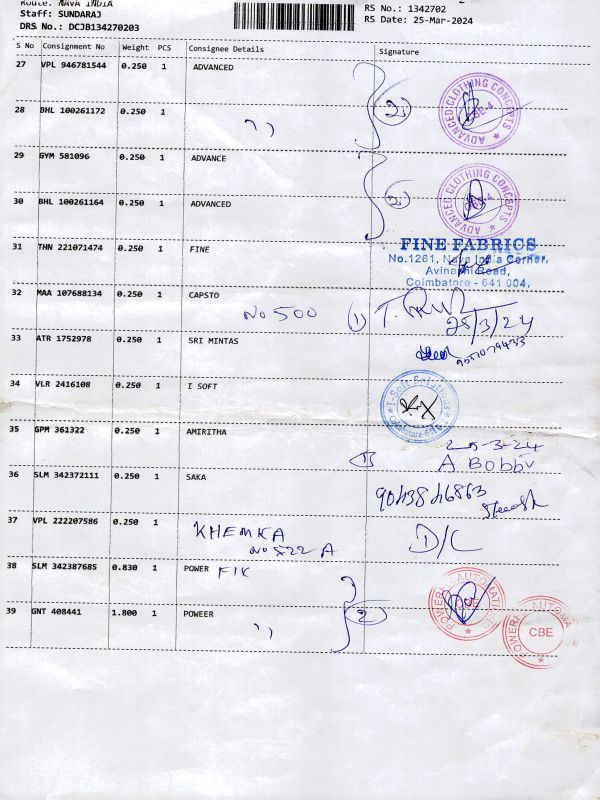 Route: NAVA INDIA
Staff: SUNDARAJ
DRS No.: DCJB134270203
RS No.: 1342702
RS Date: 25-Mar-2024
S No Consignment No Weight PCS Consignee Details Signature
27 VPL 946781544 0.250 1 ADVANCED
2)
ADVANCED CLOTHING CONCEPTS
28 BHL 100261172 0.250 1 ,,
29 GYM 581096 0.250 1 ADVANCE
ADVANCED CLOTHING CONCEPTS
30 BHL 100261164 0.250 1 ADVANCED
31 THN 221071474 0.250 1 FINE
FINE FABRICS
No.1261, Nava India Corner,
Avinashi Road,
Coimbatore - 641 004.
32 MAA 107688134 0.250 1 CAPSTO
No 500 (1)
25/3/24
33 ATR 1752978 0.250 1 SRI MINTAS
34 VLR 2416108 0.250 1 I SOFT
I Soft Solutions
35 GPM 361322 0.250 1 AMIRITHA
25-3-24
A Bobby
36 SLM 342372111 0.250 1 SAKA
37 VPL 222207586 0.250 1 KHEMKA
No 522 A
D/C
38 SLM 342387685 0.830 1 POWER FIK
39 GNT 408441 1.800 1 POWEER
,, 2
CBE
CBE